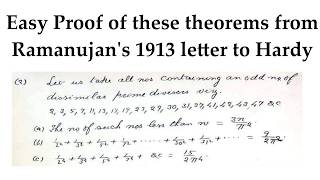 Easy Proof of these theorems from
Ramanujan's 1913 letter to Hardy
(2) Let us take all nos containing an odd no of
dissimilar prime divisors viz.
2, 3, 5, 7, 11, 13, 17, 19, 23, 29, 30, 31, 37, 41, 42, 43, 47 &c
(a) The no of such nos less than n = 3n/π²
(b) 1/2² + 1/3² + 1/5² + 1/7² + ... + 1/30² + 1/31² + ... = 9/2π²
(c) 1/2⁴ + 1/3⁴ + 1/5⁴ + 1/7⁴ + &c = 15/2π⁴